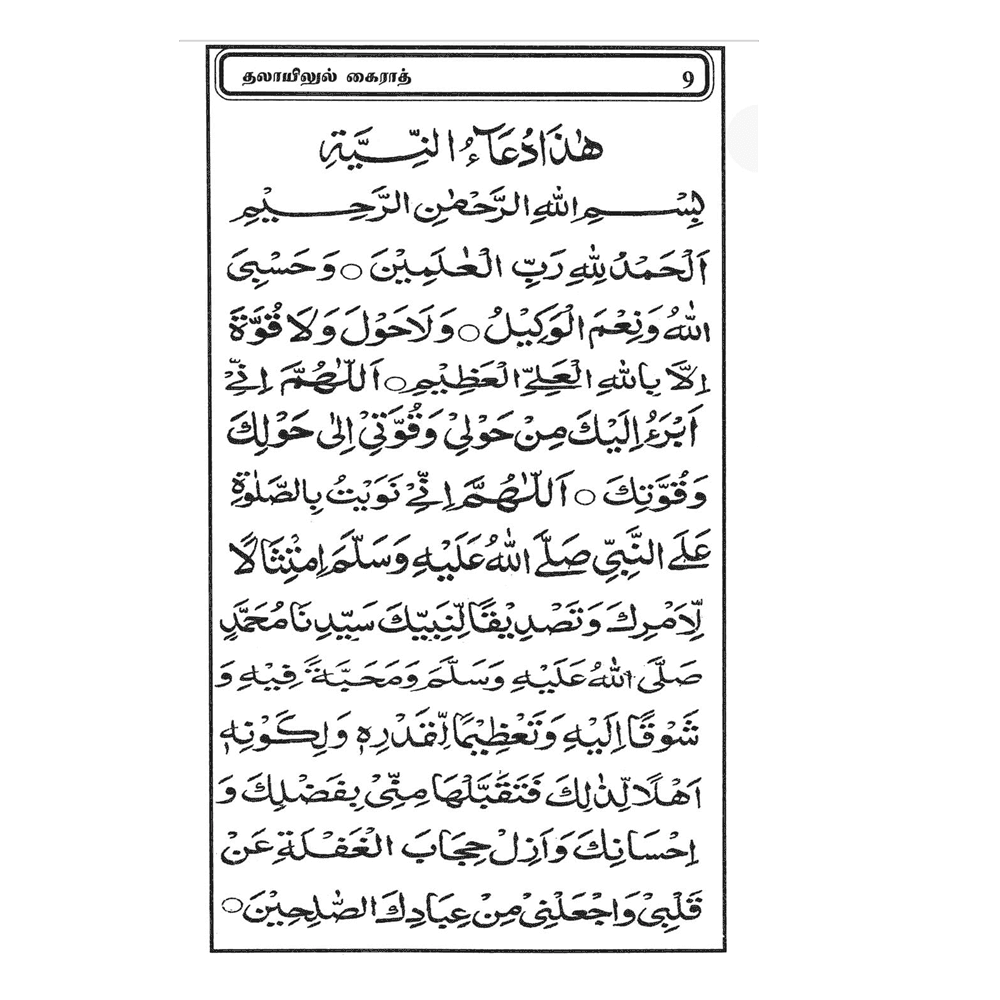 தலாயிலுல் கைராத் 9
هٰذَا دُعَآءُ النِّيَّةِ
بِسْمِ اللهِ الرَّحْمٰنِ الرَّحِيْمِ
اَلْحَمْدُ لِلّٰهِ رَبِّ الْعٰلَمِيْنَ ○ وَحَسْبِيَ
اللهُ وَنِعْمَ الْوَكِيْلُ ○ وَلَا حَوْلَ وَلَا قُوَّةَ
اِلَّا بِاللهِ الْعَلِيِّ الْعَظِيْمِ ○ اَللّٰهُمَّ اِنِّيْ
اَبْرَءُ اِلَيْكَ مِنْ حَوْلِيْ وَقُوَّتِيْ اِلٰى حَوْلِكَ
وَقُوَّتِكَ ○ اَللّٰهُمَّ اِنِّيْ نَوَيْتُ بِالصَّلٰوةِ
عَلَى النَّبِيِّ صَلَّى اللهُ عَلَيْهِ وَسَلَّمَ اِمْتِثَالًا
لِّاَمْرِكَ وَتَصْدِيْقًا لِّنَبِيِّكَ سَيِّدِنَا مُحَمَّدٍ
صَلَّى اللهُ عَلَيْهِ وَسَلَّمَ وَمَحَبَّةً فِيْهِ وَ
شَوْقًا اِلَيْهِ وَتَعْظِيْمًا لِّقَدْرِهٖ وَلِكَوْنِهٖ
اَهْلًا لِّذٰلِكَ فَتَقَبَّلْهَا مِنِّيْ بِفَضْلِكَ وَ
اِحْسَانِكَ وَاَزِلْ حِجَابَ الْغَفْلَةِ عَنْ
قَلْبِيْ وَاجْعَلْنِيْ مِنْ عِبَادِكَ الصّٰلِحِيْنَ ○